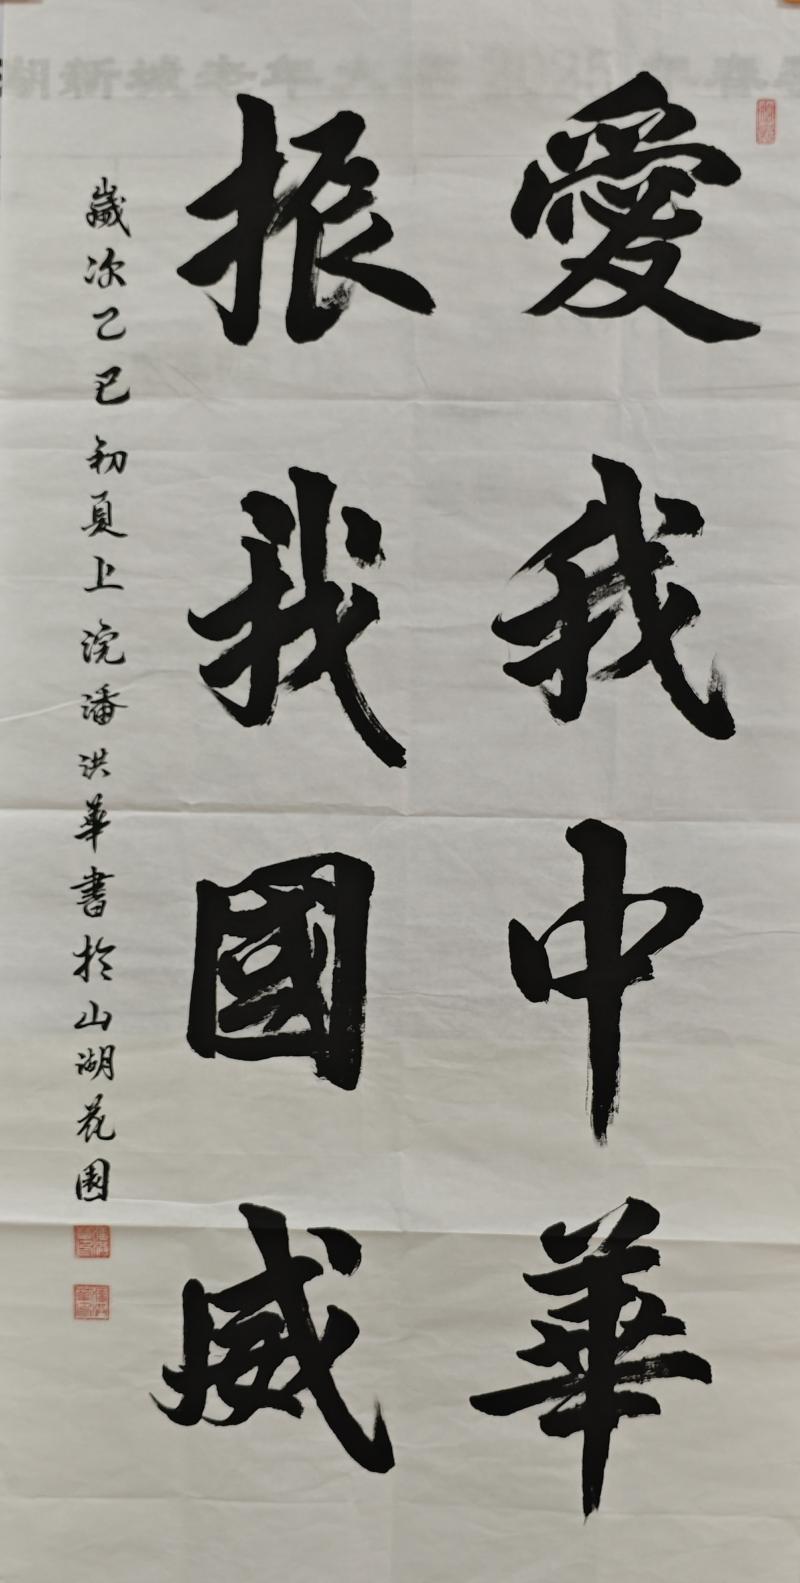 愛我中華
振我國威
歲次乙巳初夏上浣潘洪華書於山湖花園